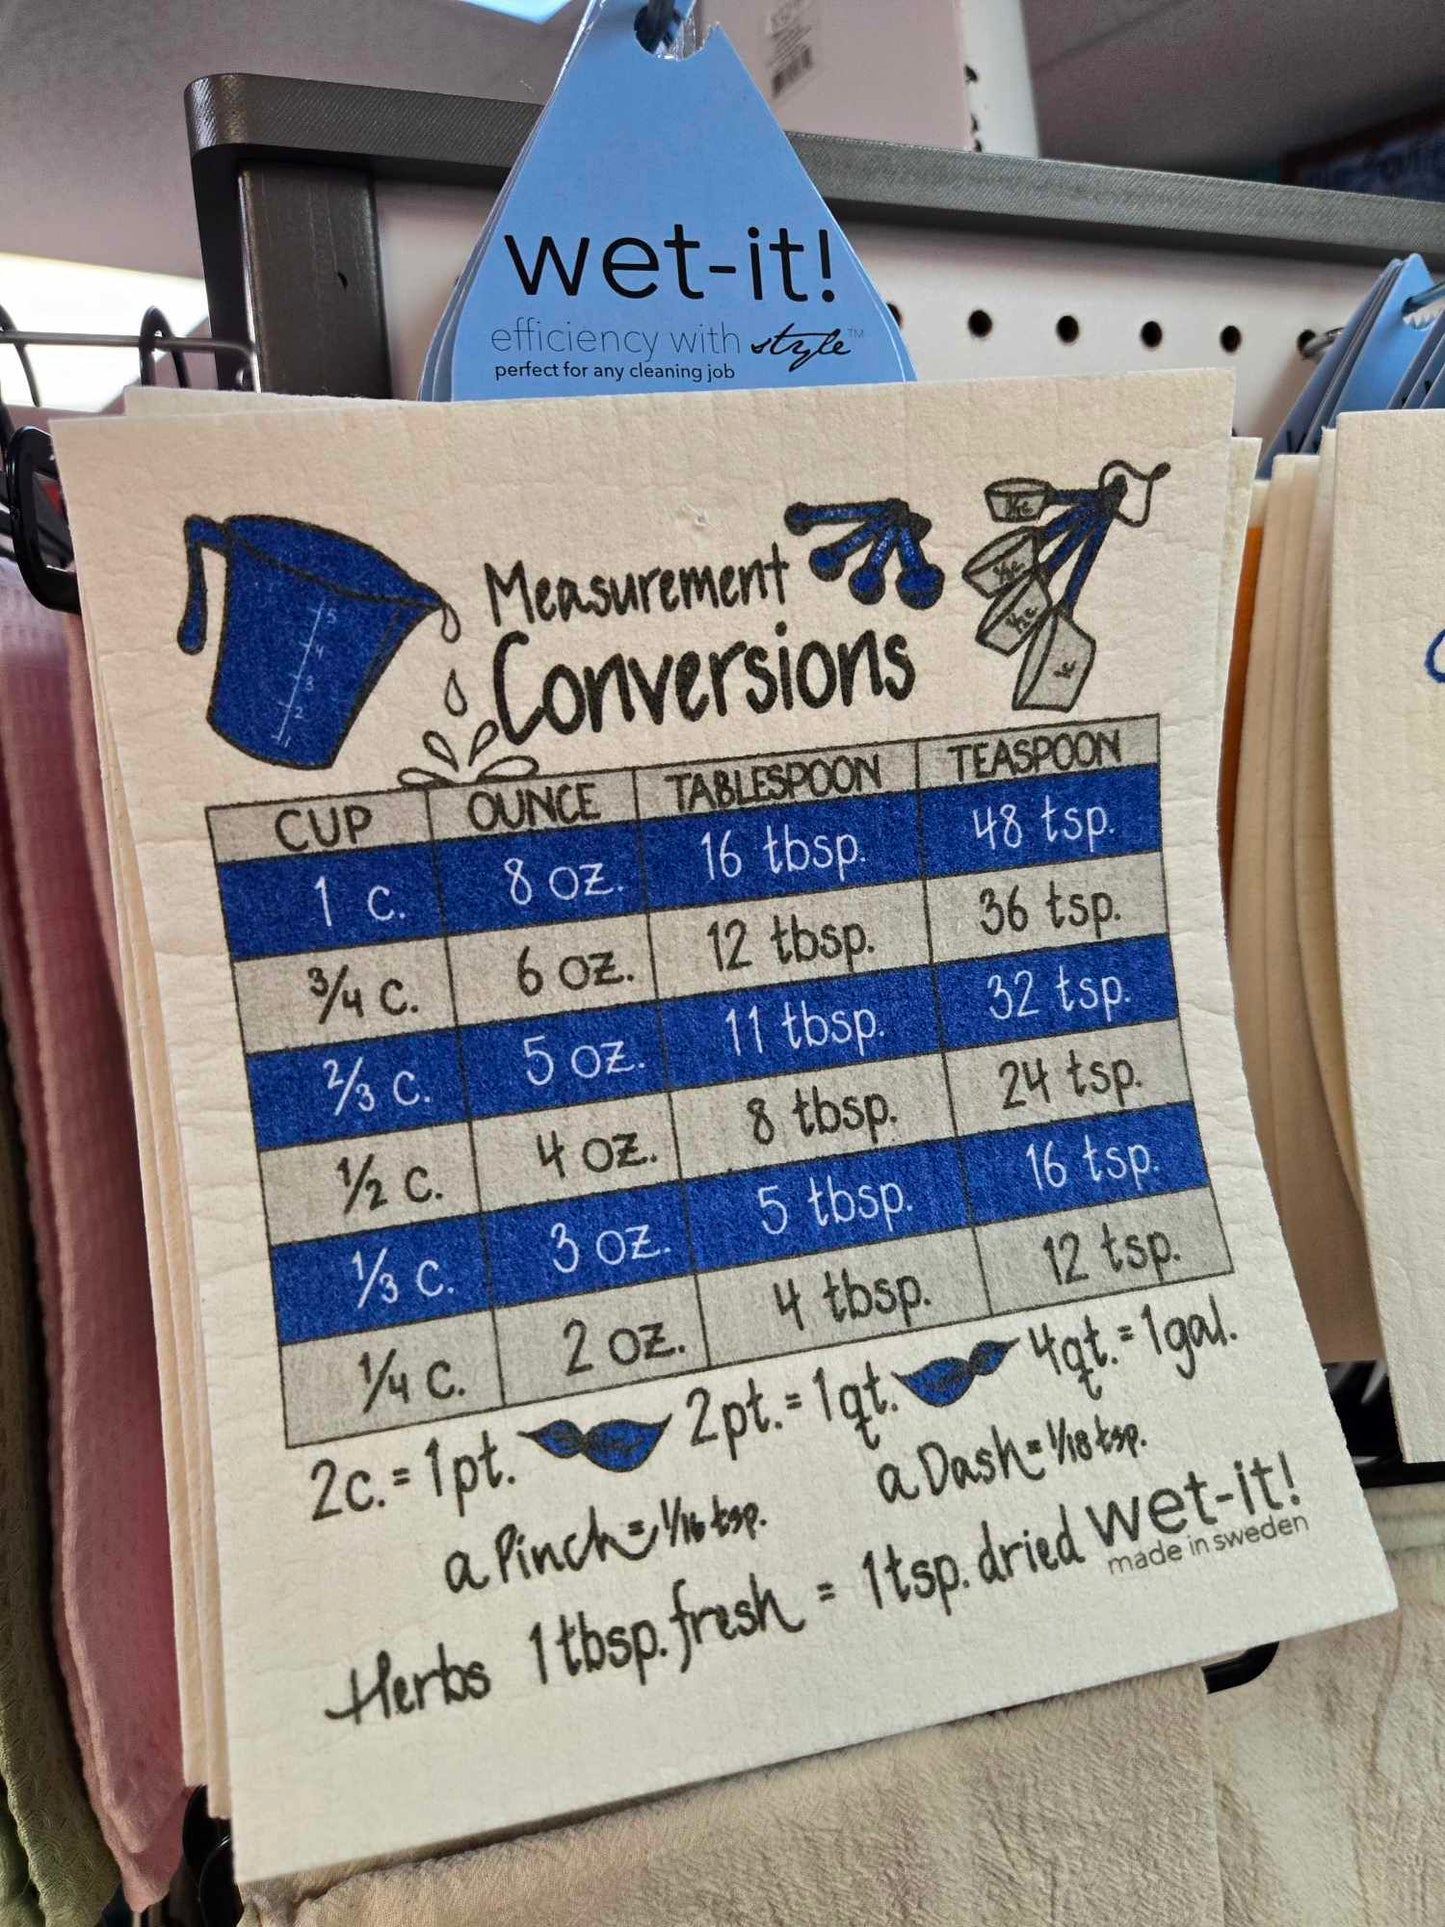 wet-it!
efficiency with style™
perfect for any cleaning job
Measurement
Conversions
5
4
3
2
1
CUP OUNCE TABLESPOON TEASPOON
1 c. 8 oz. 16 tbsp. 48 tsp.
3/4 c. 6 oz. 12 tbsp. 36 tsp.
2/3 c. 5 oz. 11 tbsp. 32 tsp.
1/2 c. 4 oz. 8 tbsp. 24 tsp.
1/3 c. 3 oz. 5 tbsp. 16 tsp.
1/4 c. 2 oz. 4 tbsp. 12 tsp.
2c. = 1pt. 2pt. = 1qt. 4qt. = 1gal.
a Pinch = 1/16 tsp. a Dash = 1/18 tsp.
Herbs 1 tbsp. fresh = 1 tsp. dried
wet-it!
made in sweden